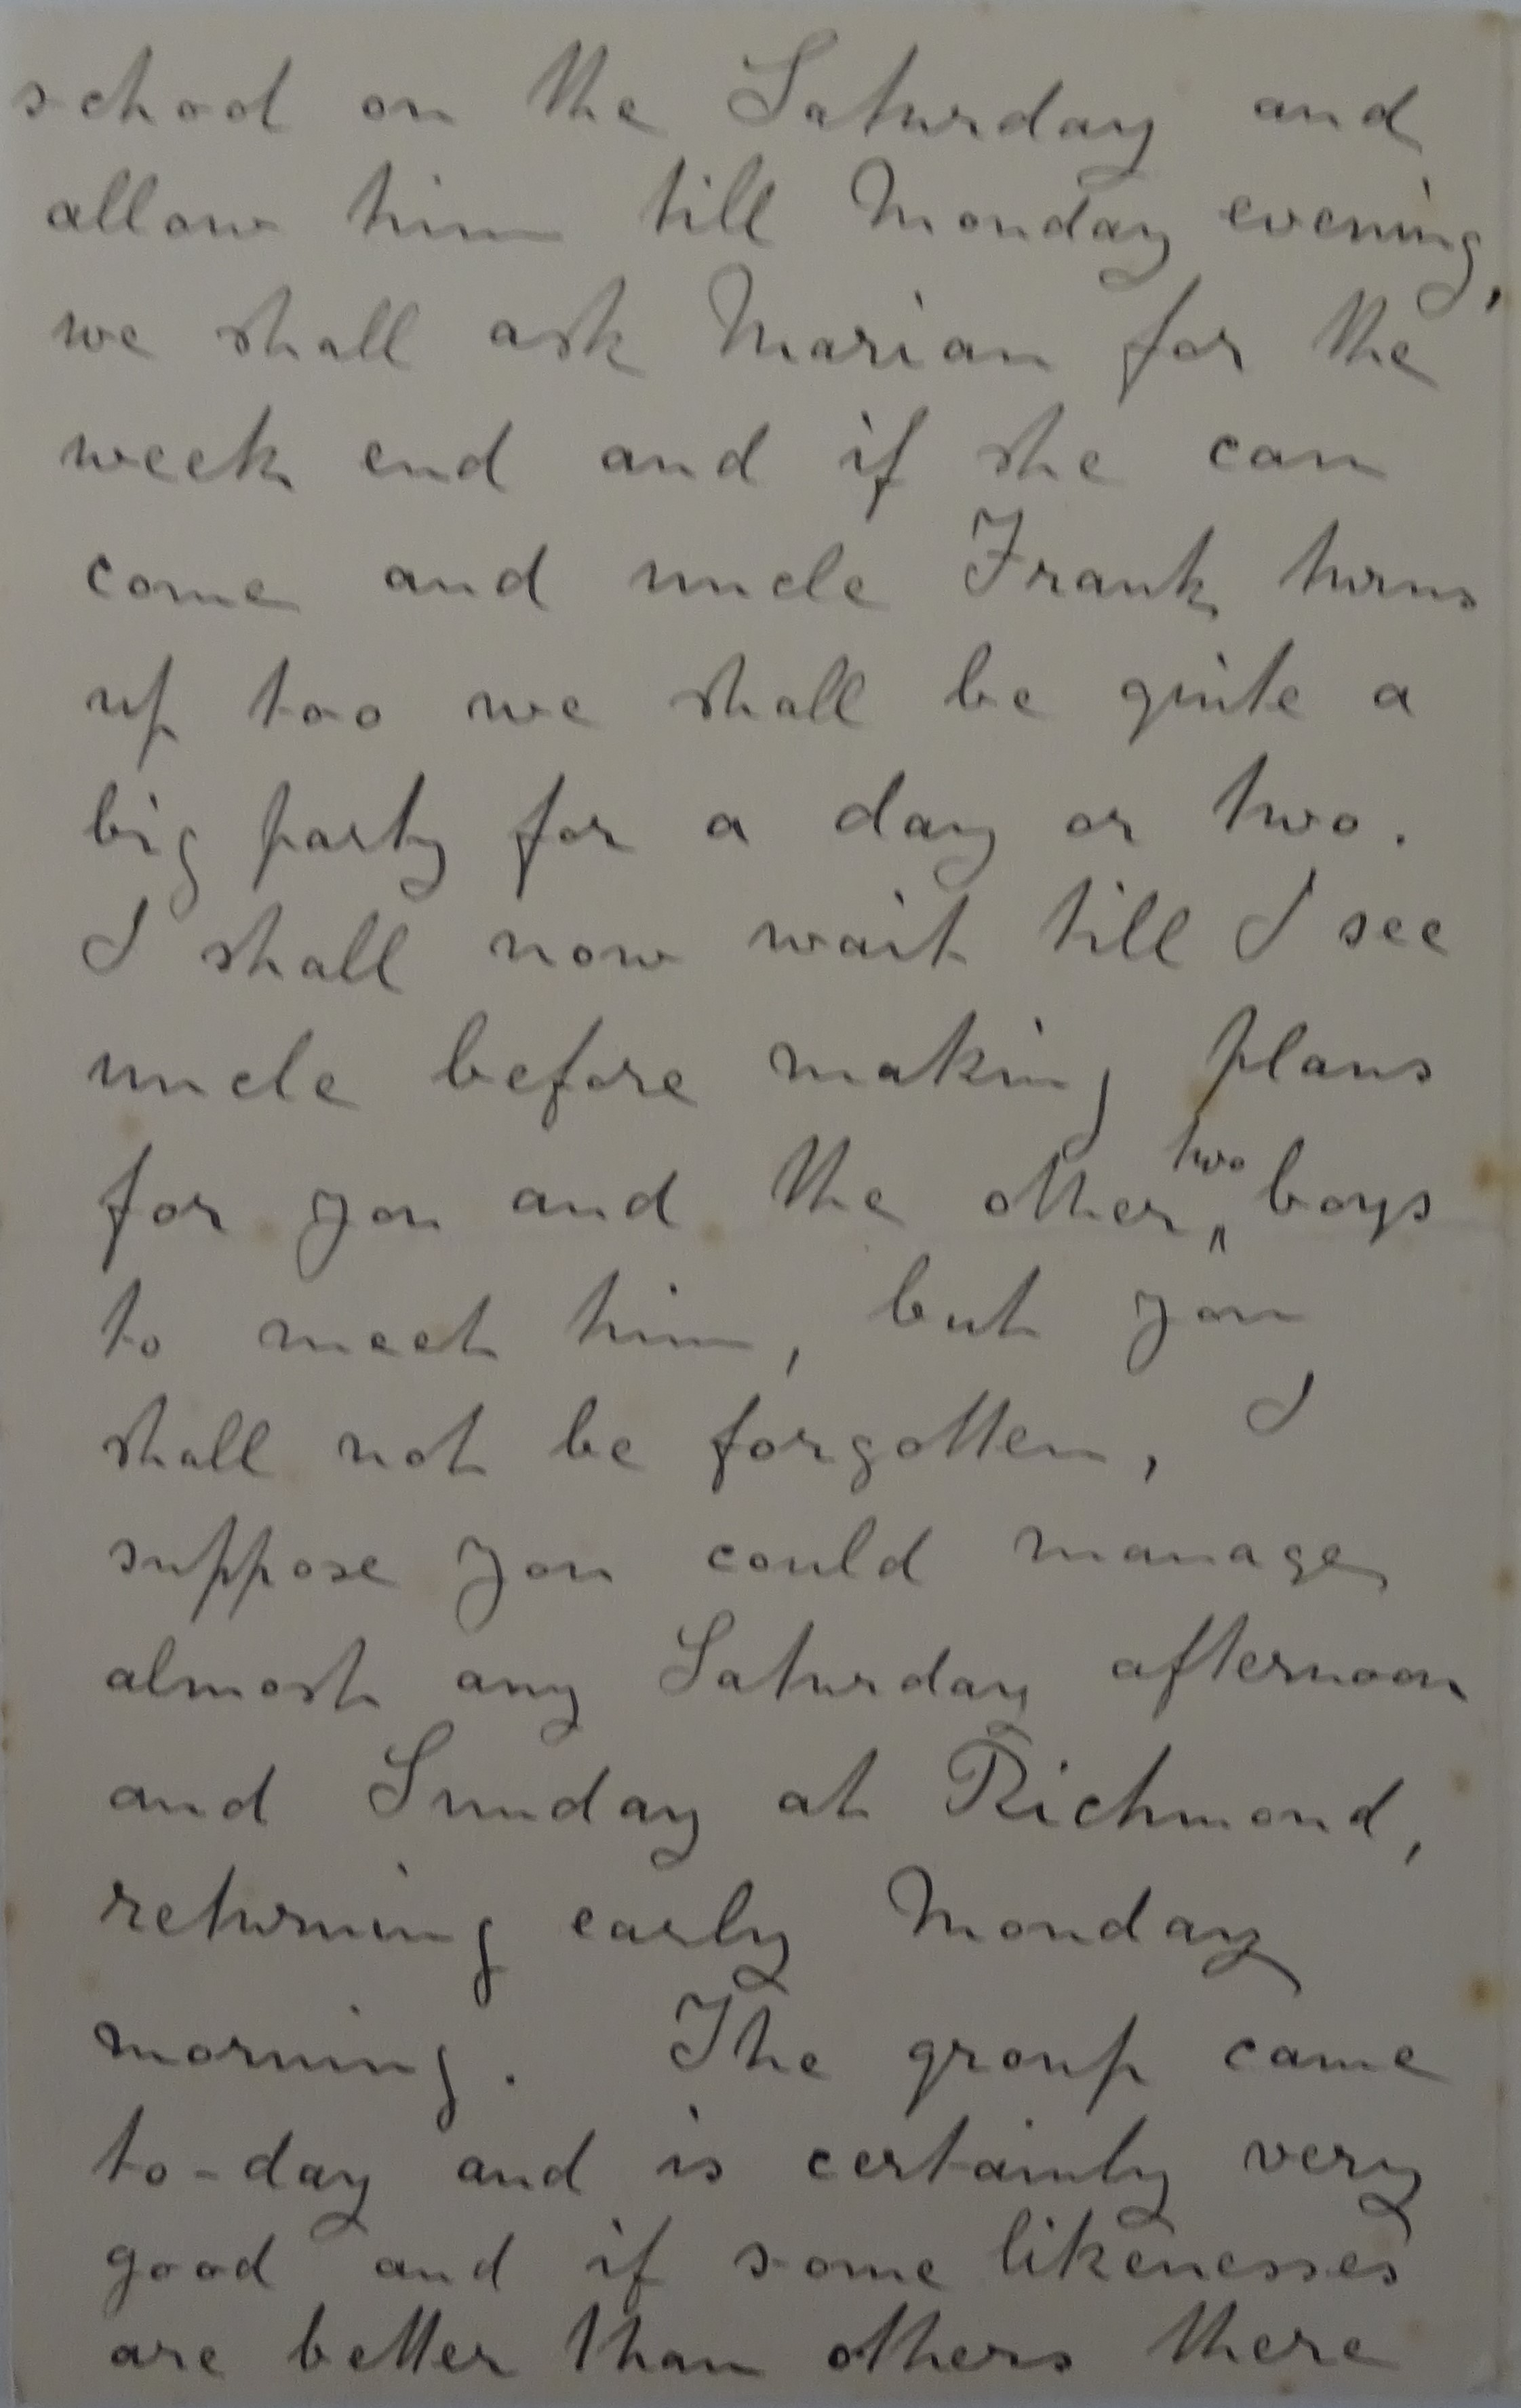 school on the Saturday and
allow him till Monday evening,
we shall ask Marian for the
week end and if she can
come and uncle Frank turns
up too we shall be quite a
big party for a day or two.
I shall now wait till I see
uncle before making plans
for you and the other two boys
to meet him, but you
shall not be forgotten, I
suppose you could manage
almost any Saturday afternoon
and Sunday at Richmond,
returning early Monday
morning. The group came
to-day and is certainly very
good and if some likenesses
are better than others there